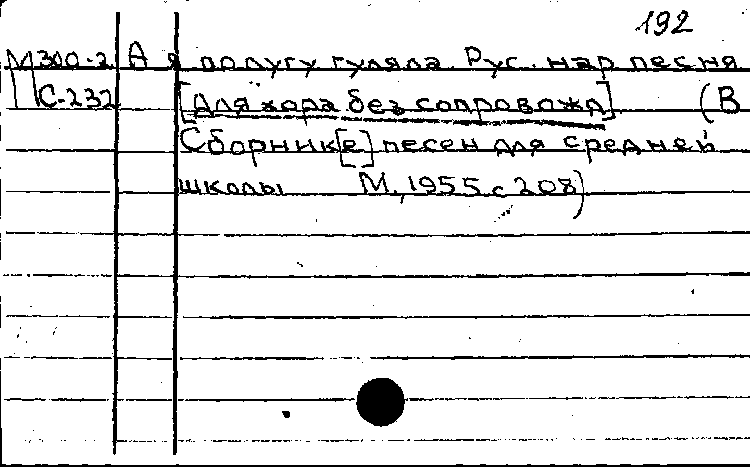 192
М300-2 А я по лугу гуляла. Рус. нар песня
С-232 [Для хора без сопровожд] (В
Сборник[е] песен для средней
школы М., 1955 с 208)